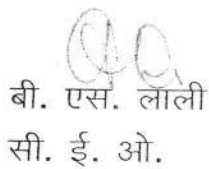 बी. एस. लाली
सी. ई. ओ.